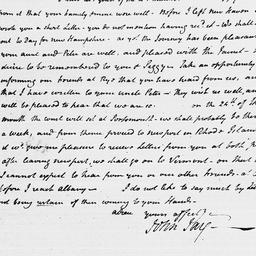 from it that your family were well. Before I left New Haven
wrote you a short letter - you do not mention having recd. it - We shall
out to Day for new Hampshire - as yet the Journey has been pleasant
your aunt and Peter are well - and pleased with the Jaunt -
desire to be remembered to you & Peggy - Take an opportunity
informing our Friends at Rye that you have heard from us, and
that I have written to your uncle Peter - They wish us well, and
will be pleased to hear that we are so. on the 24th of
month the court will sit at Portsmouth - we shall probably be there
a week, and from thence proceed to Newport in Rhode Island
It wd. give me pleasure to receive Letters from you at both
after leaving Newport, we shall go on to Vermont - on that
I cannot expect to hear from you or our other Friends - a
before I reach albany - I do not like to say much by
not being certain of their coming to your Hands -
adieu yours affectly.
John Jay -